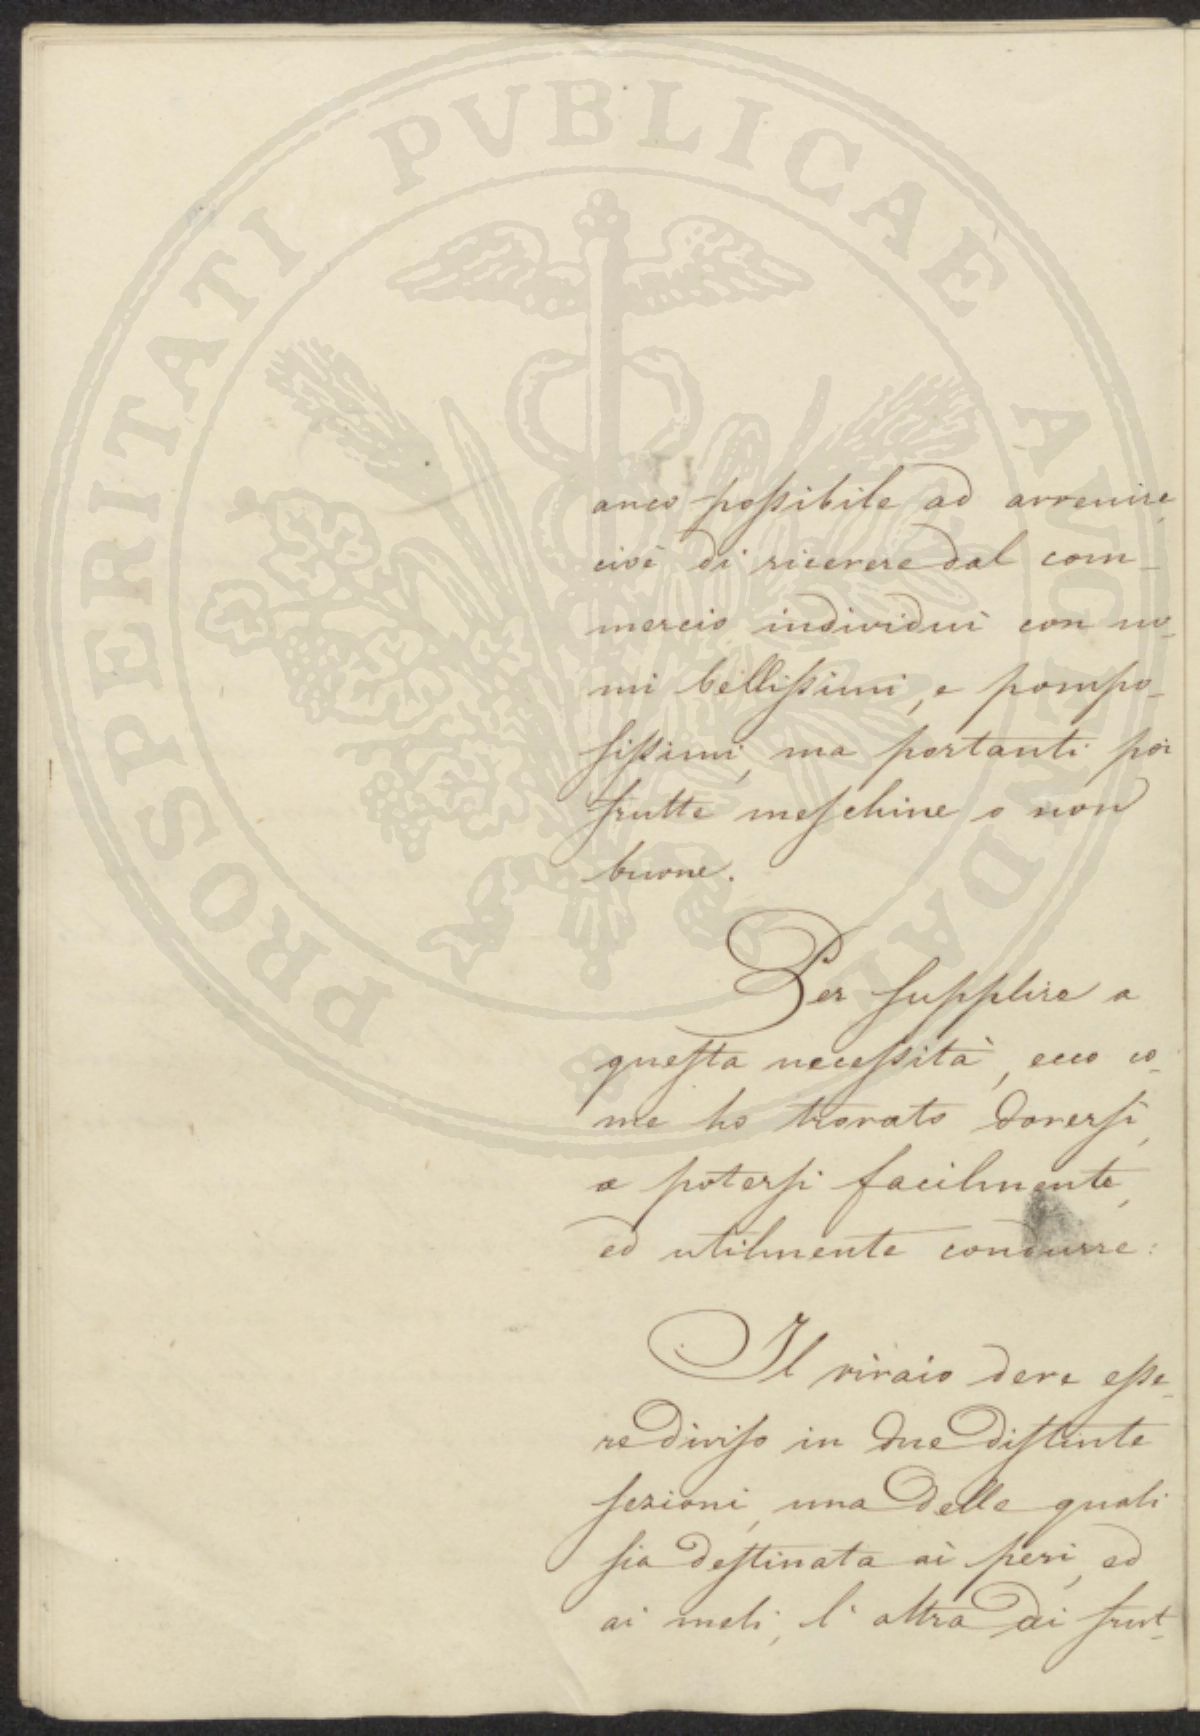 PROSPERITATI PUBLICAE AUGENDAE
anco possibile ad avvenire,
cioè di ricevere dal com-
mercio individui con no-
mi bellissimi, e pompo-
sissimi, ma portanti poi
frutte meschine o non
buone.
Per supplire a
questa necessità, ecco co-
me ho trovato doversi,
e potersi facilmente,
ed utilmente condurre:
Il vivaio deve esse-
re diviso in due distinte
sezioni, una delle quali
sia destinata ai peri, ed
ai meli, l'altra ai frut-